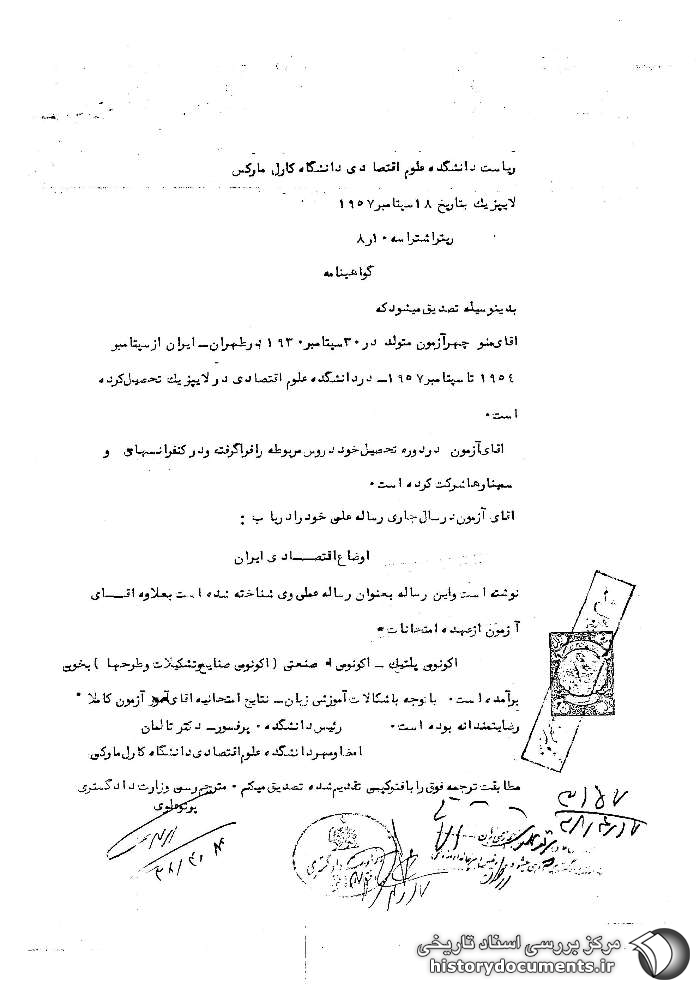 ریاست دانشگده علوم اقتصادی دانشگاه کارل مارکس
لایپزیك بتاریخ ۱۸سپتامبر۱۹۵۷
ریتراشتراسه ۱۰ر۸
گواهینامه
بدینوسیله تصدیق میشود که
اقای منو چهر آزمون متولد در ۳۰سپتامبر ۱۹۳۰ در طهران ــ ایران از سپتامبر
۱۹۵٤ تا سپتامبر ۱۹۵۷ ــ دردانشگده علوم اقتصادی در لایپزیك تحصیل کرده
است۰
اقای آزمون دردوره تحصیل خود دروس مربوطه رافراگرفته ودر کنفرانسهای و
سمینارها شرکت کرده است۰
اقای آزمون در سال جاری رساله علمی خود را در باب :
اوضاع اقتصـــادی ایران
نوشته است واین رساله بعنوان رساله عملی وی شناخته شده است بعلاوه اقــای
آزمون از عهده امتحانات
اکونومی پلتیك ــ اکونومی صنعتی ( اکونومی صنایع وتشکیلات وطرحها ) بخوبی
برآمده است۰ باتوجه باشکالات آموزشی زبان ــ نتایج امتحانیه اقای آزمون کاملا
رضایتمندانه بوده است۰ رئیس دانشگده ۰ پرفسور ــ دکتر تالمان
امضا ومهر دانشگده علوم اقتصادی دانشگاه کارل مارکس
مطابقت ترجمه فوق را با فتوکپی تقدیم شده تصدیق میکنم ۰ مترجم رسمی وزارت دادگستری
پرتوعلوی
مرکز بررسی اسناد تاریخی
historydocuments.ir